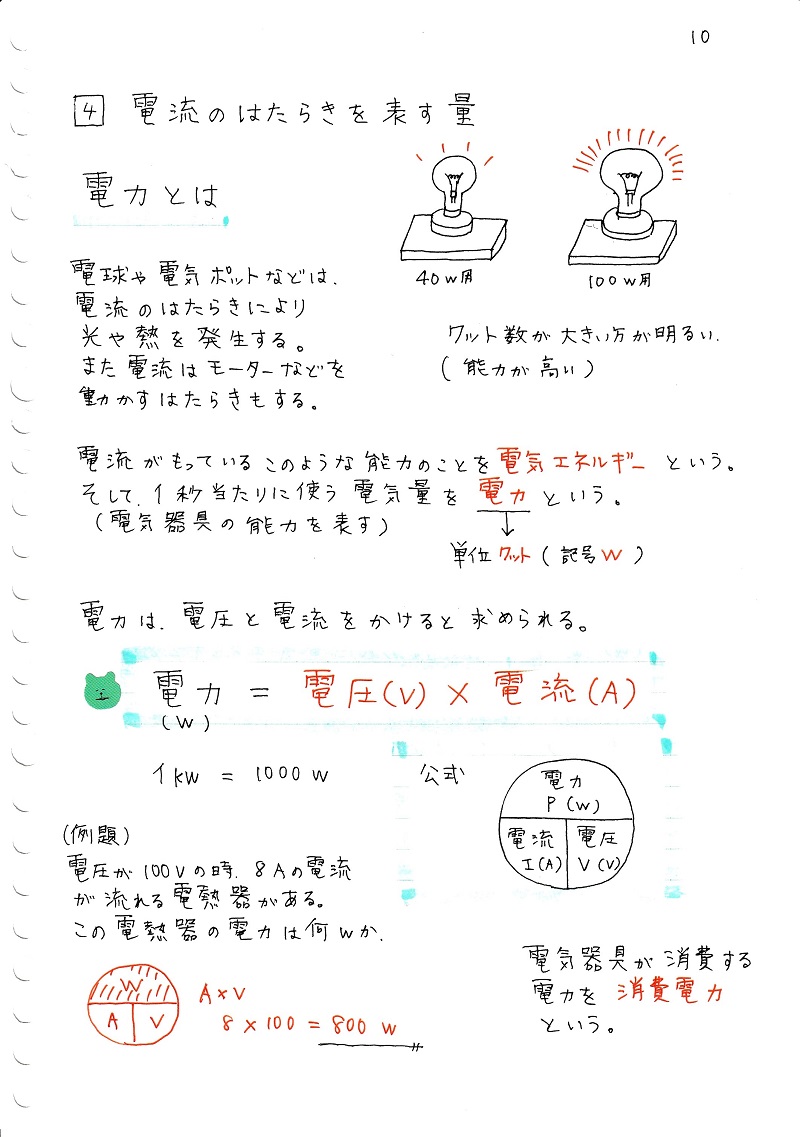 10
4 電流のはたらきを表す量
電力とは
40W用
100W用
電球や電気ポットなどは、
電流のはたらきにより
光や熱を発生する。
また電流はモーターなどを
動かすはたらきもする。
ワット数が大きい方が明るい.
(能力が高い)
電流がもっているこのような能力のことを電気エネルギーという。
そして、1秒当たりに使う電気量を電力という。
(電気器具の能力を表す)
単位ワット(記号W)
電力は、電圧と電流をかけると求められる。
電力 = 電圧(V) × 電流(A)
(W)
1kW = 1000W
公式
電力
P(W)
電流 電圧
I(A) V(V)
(例題)
電圧が100Vの時、8Aの電流
が流れる電熱器がある。
この電熱器の電力は何Wか.
W
A V
A×V
8×100=800W
電気器具が消費する
電力を消費電力
という。